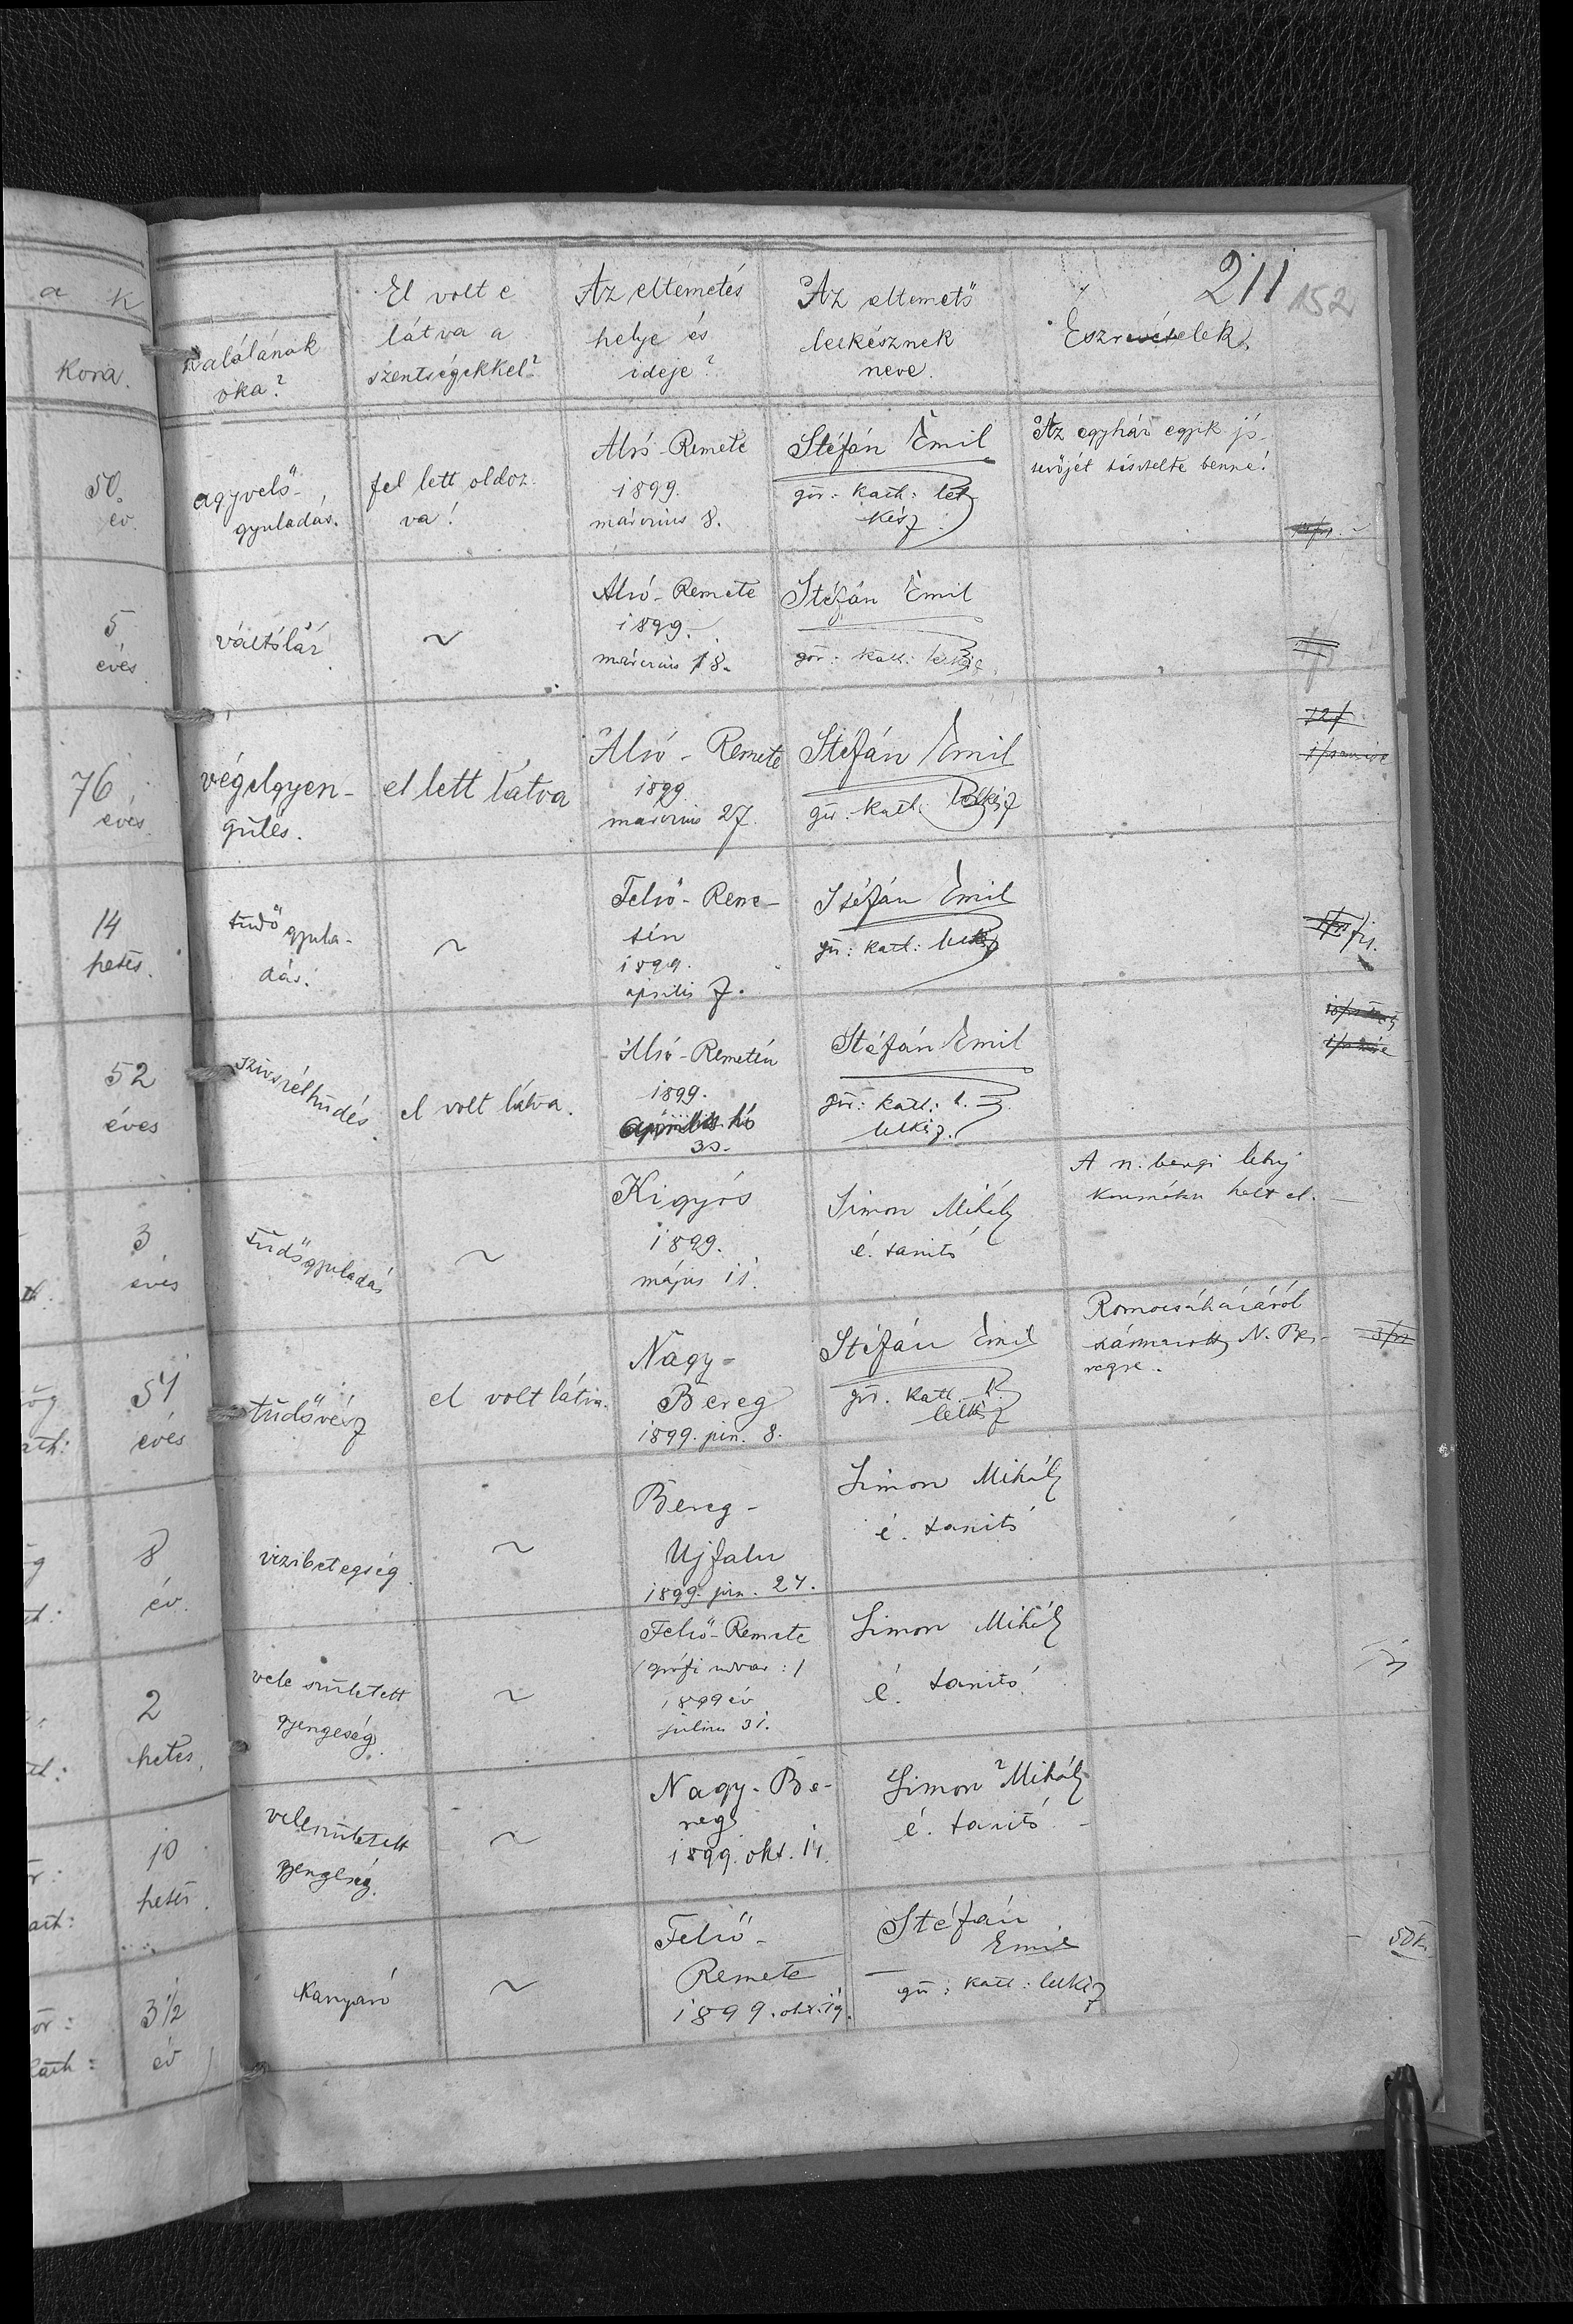 211 152
a k
Kora.
halálának
oka?
El volt e
látva a
szentségekkel?
Az eltemetés
helye és
ideje?
Az eltemető
lelkésznek
neve.
Észrevételek.
50.
év.
agyvelő-
gyuladás.
fel lett oldoz-
va!
Alsó-Remete
1899.
március 8.
Stéfán Emil
gör: kath: lel
kész
Az egyház egyik jó-
tevőjét tisztelte benne!
5
éves
váltóláz
~
Alsó-Remete
1899.
március 18.
Stéfán Emil
gör: kath: lelkész
76
éves
végelgyen-
gülés.
el lett látva
Alsó-Remete
1899
március 27.
Stéfán Emil
gör: kath: lelkész
14
hetes.
tüdőgyula-
dás.
~
Felső-Reme-
tén
1899.
április 7.
Stéfán Emil
gör: kath: lelkész
52
éves
szivszélhüdés.
el volt látva.
Alsó-Remetén
1899.
április hó
30.
Stéfán Emil
gör: kath: l.
lelkész.
3
éves
tüdőgyuladás
~
Kigyós
1899.
május 11.
Simon Mihály
é. tanitó
A n. beregi
halt el.
51
éves
tüdővész
el volt látva.
Nagy-
Bereg
1899. jún. 8.
Stéfán Emil
gör. kath.
lelkész
Romocsaházáról
származott N. Be-
regre.
8
év.
vizibetegség.
~
Bereg-
Ujfalu
1899. jún. 27.
Simon Mihály
é. tanitó
2
hetes.
vele született
gyengeség.
~
Felső-Remete
/grófi udvar:/
1899 év
julius 31.
Simon Mihály
é. tanitó
10
hetes.
veleszületett
gyengeség.
~
Nagy-Be-
reg
1899. okt. 11.
Simon Mihály
é. tanitó
3 1/2
év
Kanyaró
~
Felső-
Remete
1899. okt. 19.
Stéfán
Emil
gör: kath: lelkész
50 k.